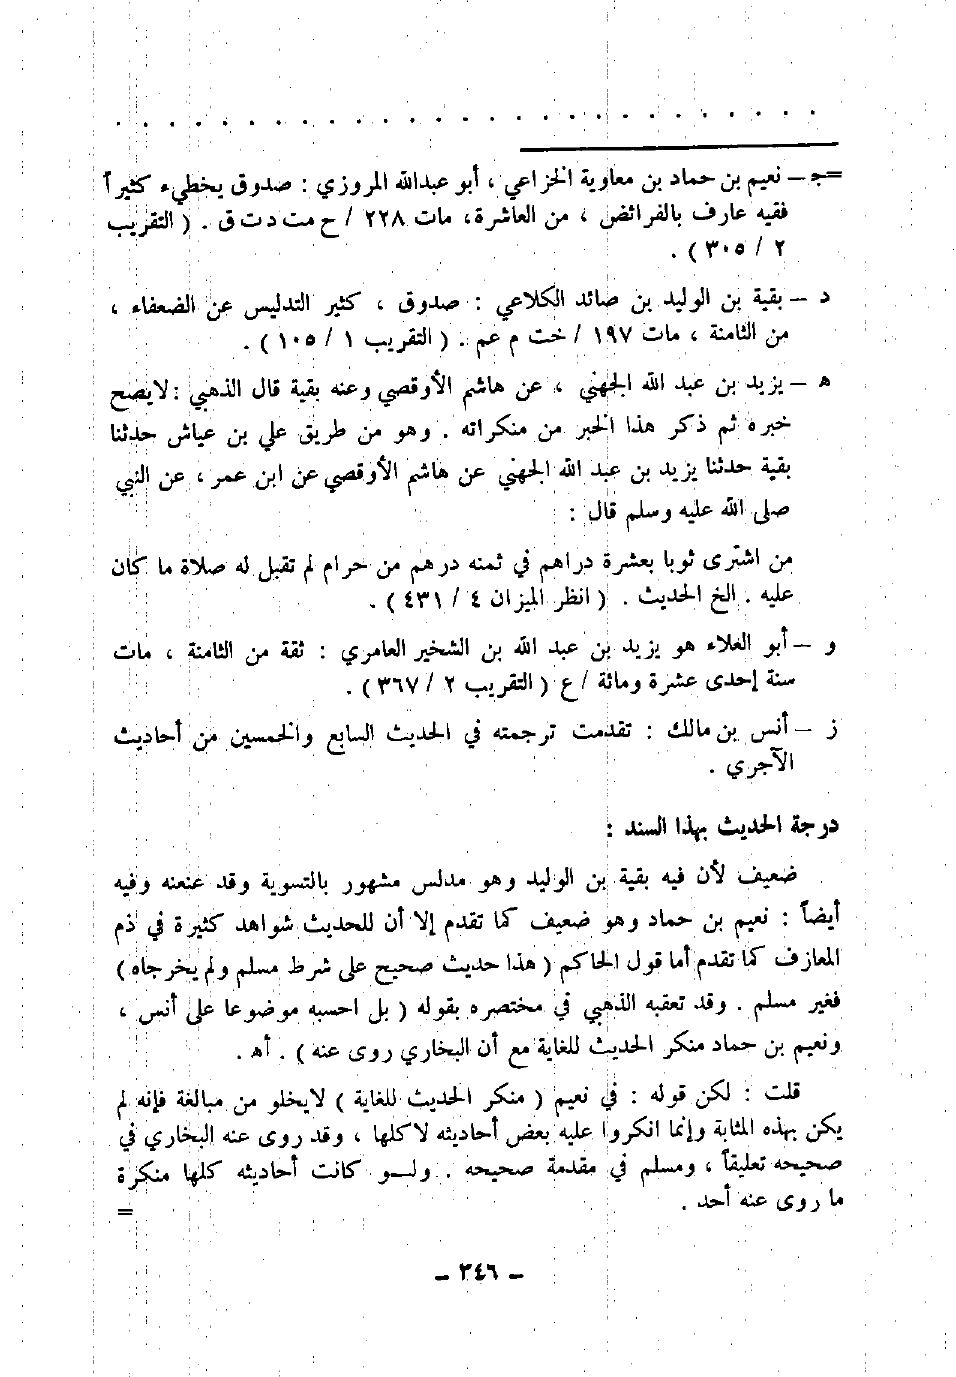 . . . . . . . . . . . . . . . . . . . . . . . . . . .
=جـ – نعيم بن حماد بن معاوية الخزاعي ، أبو عبدالله المروزي : صدوق يخطيء كثيراً
فقيه عارف بالفرائض ، من العاشرة، مات ٢٢٨ / خ مت د ت ق . ( التقريب
٢ / ٣٠٥ ) .
د – بقية بن الوليد بن صائد الكلاعي : صدوق ، كثير التدليس عن الضعفاء ،
من الثامنة ، مات ١٩٧ / خت م عم . ( التقريب ١ / ١٠٥ ) .
هـ – يزيد بن عبد الله الجهني ، عن هاشم الأوقصي وعنه بقية قال الذهبي : لايصح
خبره ثم ذكر هذا الخبر من منكراته . وهو من طريق علي بن عياش حدثنا
بقية حدثنا يزيد بن عبد الله الجهني عن هاشم الأوقصي عن ابن عمر ، عن النبي
صلى الله عليه وسلم قال :
من اشترى ثوبا بعشرة دراهم في ثمنه درهم من حرام لم تقبل له صلاة ما كان
عليه . الخ الحديث . ( انظر الميزان ٤ / ٤٣١ ) .
و – أبو العلاء هو يزيد بن عبد الله بن الشخير العامري : ثقة من الثامنة ، مات
سنة إحدى عشرة ومائة / ع ( التقريب ٢ / ٣٦٧ ) .
ز – أنس بن مالك : تقدمت ترجمته في الحديث السابع والخمسين من أحاديث
الآجري .
درجة الحديث بهذا السند :
ضعيف لأن فيه بقية بن الوليد وهو مدلس مشهور بالتسوية وقد عنعنه وفيه
أيضاً : نعيم بن حماد وهو ضعيف كما تقدم إلا أن للحديث شواهد كثيرة في ذم
المعازف كما تقدم أما قول الحاكم ( هذا حديث صحيح على شرط مسلم ولم يخرجاه )
فغير مسلم . وقد تعقبه الذهبي في مختصره بقوله ( بل احسبه موضوعا على أنس ،
ونعيم بن حماد منكر الحديث للغاية مع أن البخاري روى عنه ) . أهـ .
قلت : لكن قوله : في نعيم ( منكر الحديث للغاية ) لايخلو من مبالغة فإنه لم
يكن بهذه المثابة وإنما انكروا عليه بعض أحاديثه لا كلها ، وقد روى عنه البخاري في
صحيحه تعليقاً ، ومسلم في مقدمة صحيحه . ولـــو كانت أحاديثه كلها منكرة
ما روى عنه أحد . =
– ٣٤٦ –